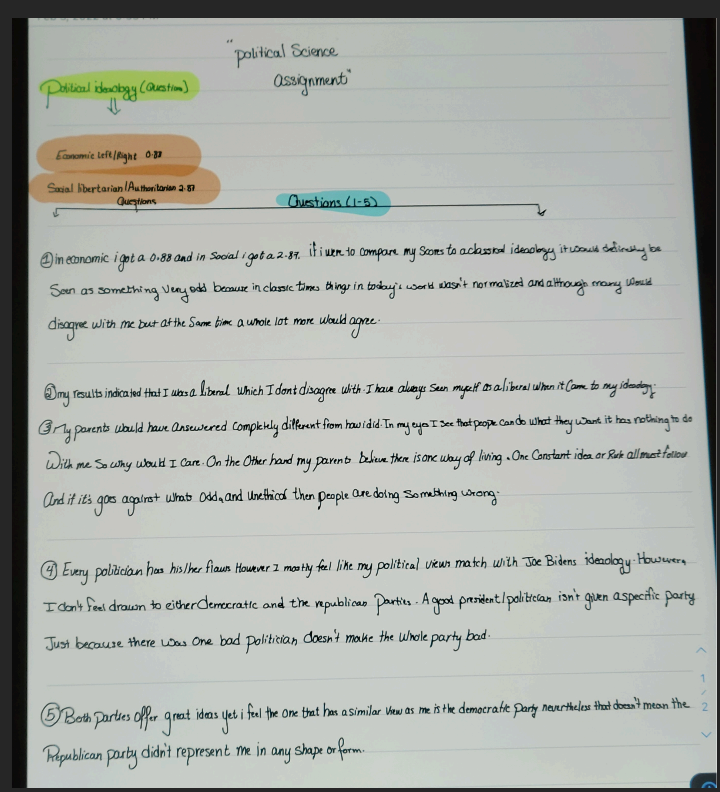 "political Science
assignment"
Political ideaology (Question)
Economic Left/Right 0.88
Social libertarian/Authoritarian 2.87
Questions
Questions (1-5)
① in economic i got a 0.88 and in Social i got a 2.87. if i were to compare my Scores to a classical ideaology it would definitely be
Seen as something very odd because in classic times things in today's world wasn't normalized and although many would
disagree with me but at the Same time a whole lot more would agree.
② my results indicated that I was a liberal which I dont disagree with. I have always Seen myself as a liberal when it Came to my ideaology.
③ My parents would have ansewered Completely different from how i did. In my eyes I see that people can do what they want it has nothing to do
With me So why would I Care. On the Other hand my parents believe there is one way of living. One Constant idea or Rule all must follow
And if it's goes against whats odd, and Unethical then people are doing Something wrong.
④ Every politician has his/her flaws However I mostly feel like my political views match with Joe Bidens ideaology. However,
I don't feel drawn to either democratic and the republican Parties. A good president/politician isn't given a specific party
Just because there was One bad Politician doesn't make the Whole party bad.
⑤ Both Parties Offer great ideas yet i feel the one that has a similar View as me is the democratic Party nevertheless that doesn't mean the
Republican party didn't represent me in any shape or form.
1
2